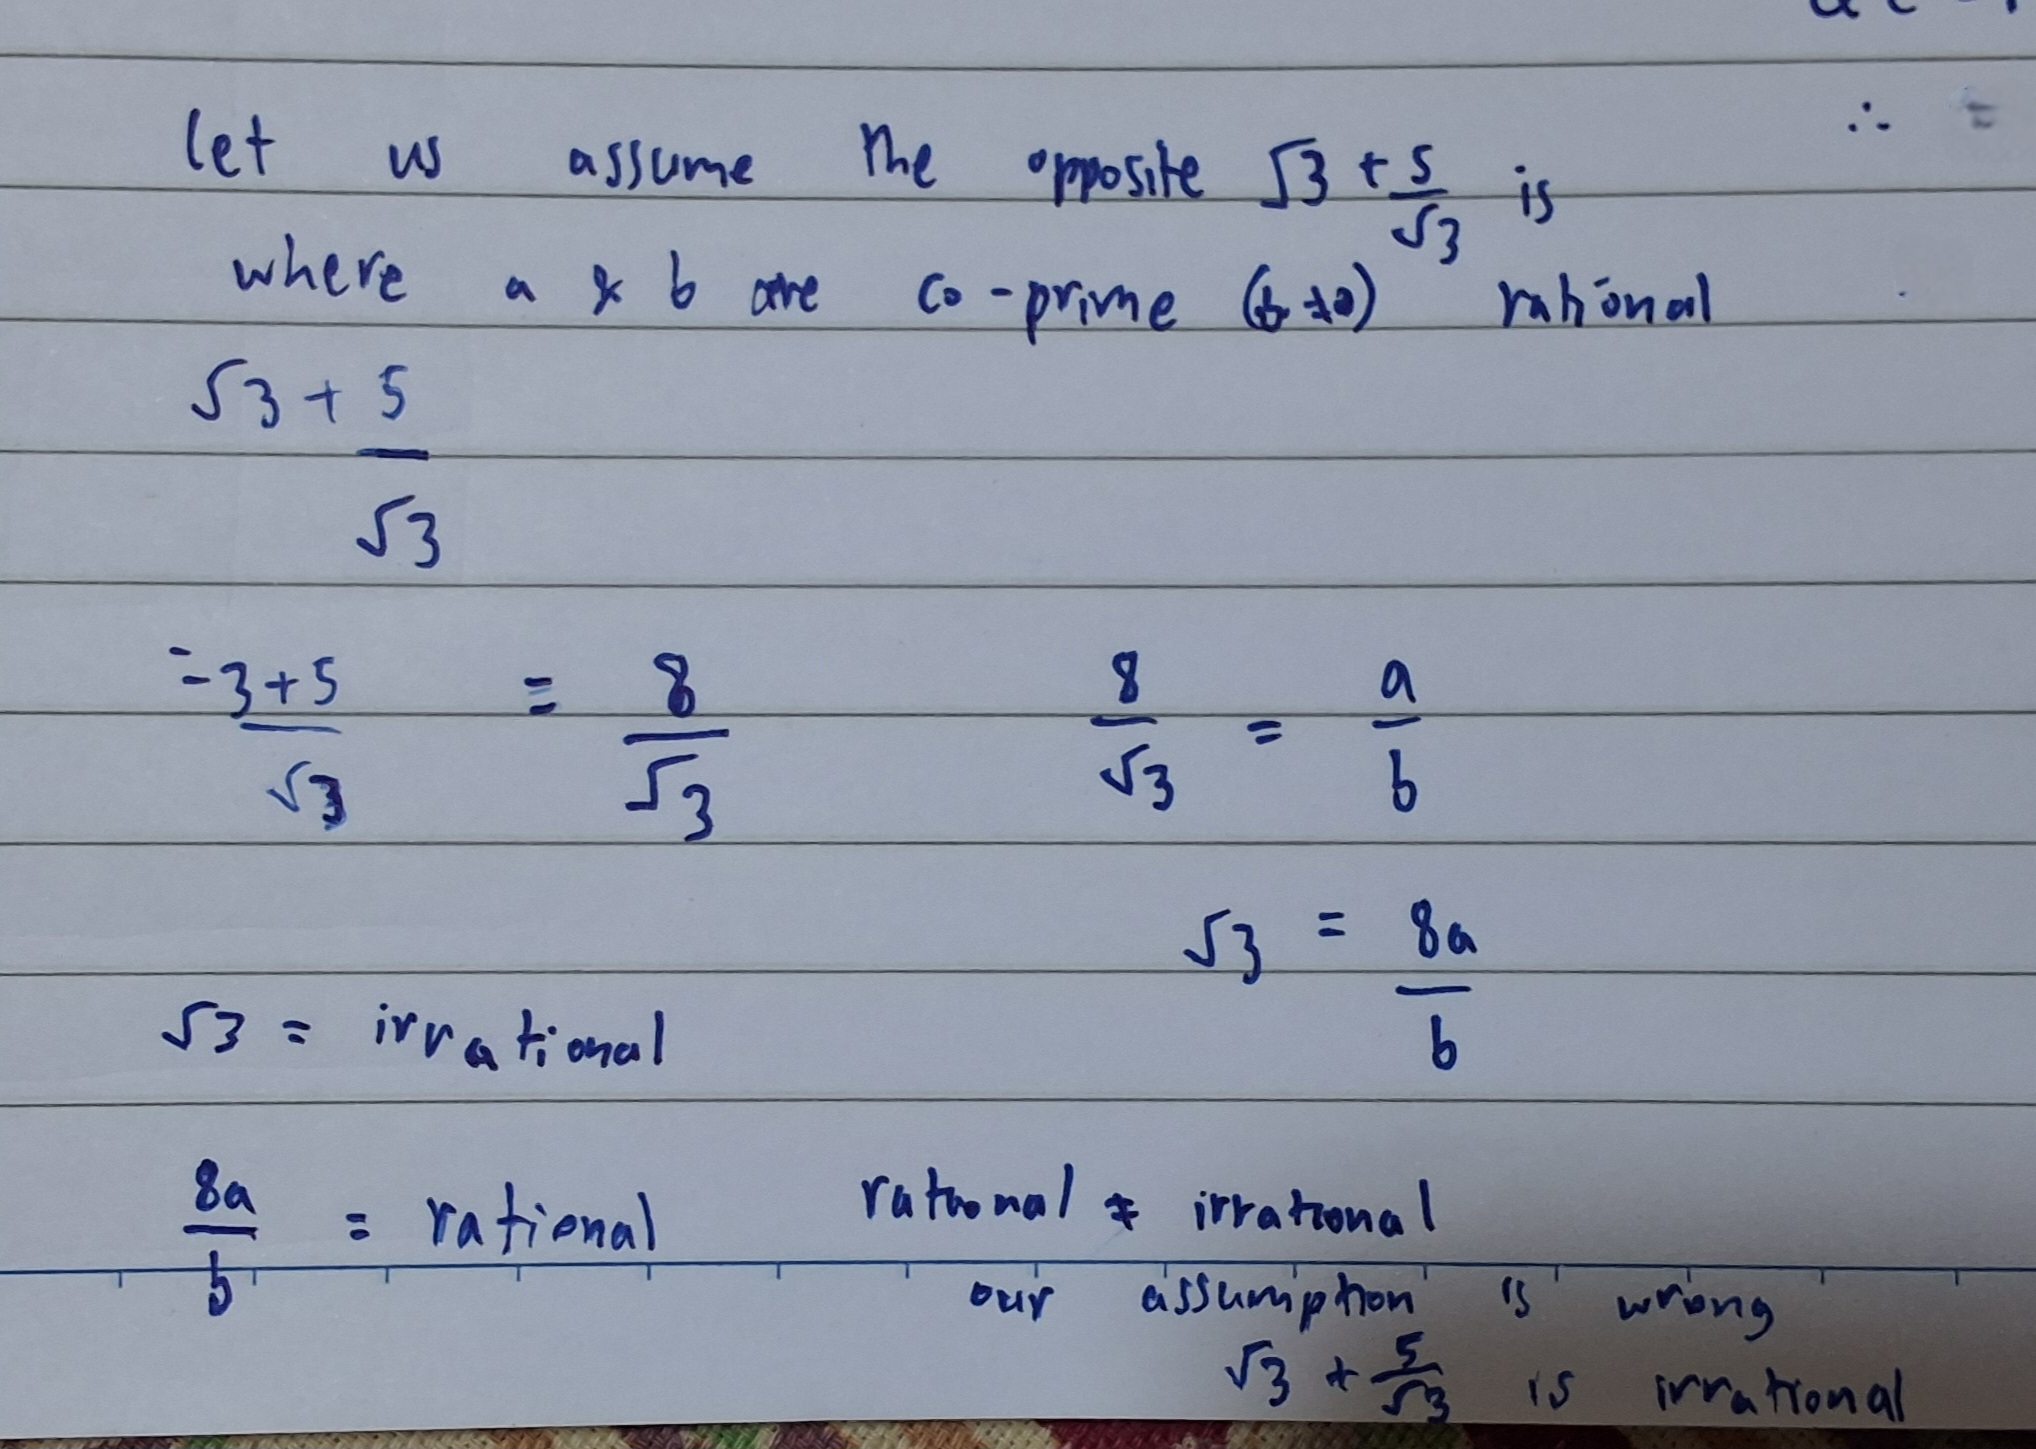 let us assume the opposite √3 + 5/√3 is
where a & b are co-prime (b ≠ 0) rational
√3 + 5/√3
= 3+5/√3 = 8/√3 8/√3 = a/b
√3 = 8a/b
√3 = irrational
8a/b = rational rational ≠ irrational
our assumption is wrong
√3 + 5/√3 is irrational